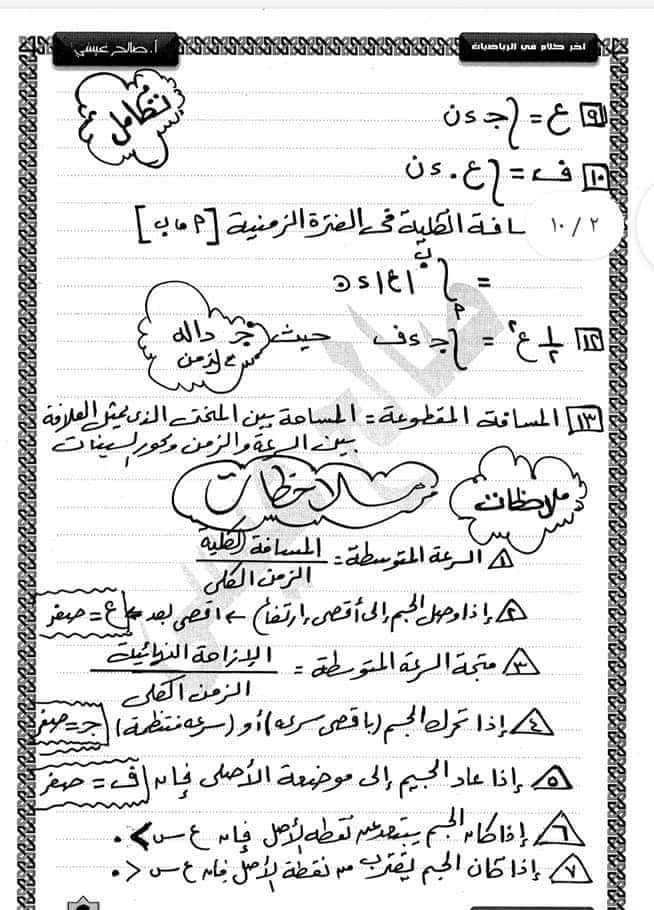 آخر كلام فى الرياضيات
أ. صالح عيسي
تكامل
٩ ع = ∫ جـ ءن
١٠ ف = ∫ ع . ءن
١٠ / ٢
سافة الكلية فى الفترة الزمنية [ ٢ ، ب ]
= ∫ |ع| ءن
١٢ ١/٢ ع٢ = ∫ جـ ءف حيث جـ دالة
١٣ المسافة المقطوعة = المساحة بين المنحنى الذى يمثل العلاقة
بين السرعة والزمن ومحور السينات
ملاحظات
ملاحظات
١ السرعة المتوسطة = المسافة الكلية / الزمن الكلى
٢ إذا وصل الجسم إلى أقصى ارتفاع ← أقصى بعد ← ع = صفر
٣ متجة السرعة المتوسطة = الإزاحة النهائية / الزمن الكلى
٤ إذا تحرك الجسم (بأقصى سرعه) أو (سرعه منتظمة) جـ = صفر
٥ إذا عاد الجسم إلى موضعة الأصلى فإنه ف = صفر
٦ إذا كان الجسم يبتعد عن نقطة الأصل فإنه ع س > ٠
٧ إذا كان الجسم يقترب من نقطة الأصل فإنه ع س < ٠